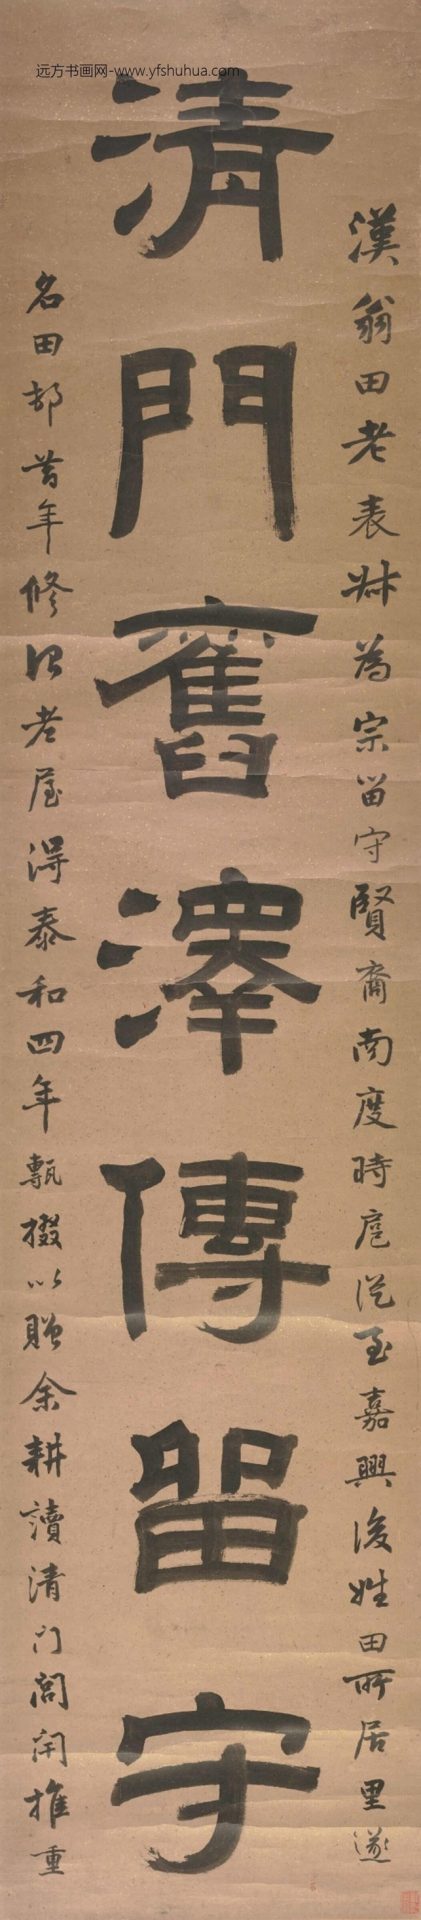 远方书画网-www.yfshuhua.com
漢翁田老表叔為宗留守賢裔南度時扈從至嘉興後姓田所居里遂
清門舊澤傳留守
名田邨昔年修治老屋得泰和四年甎掇以贈余耕讀清門閭閈推重